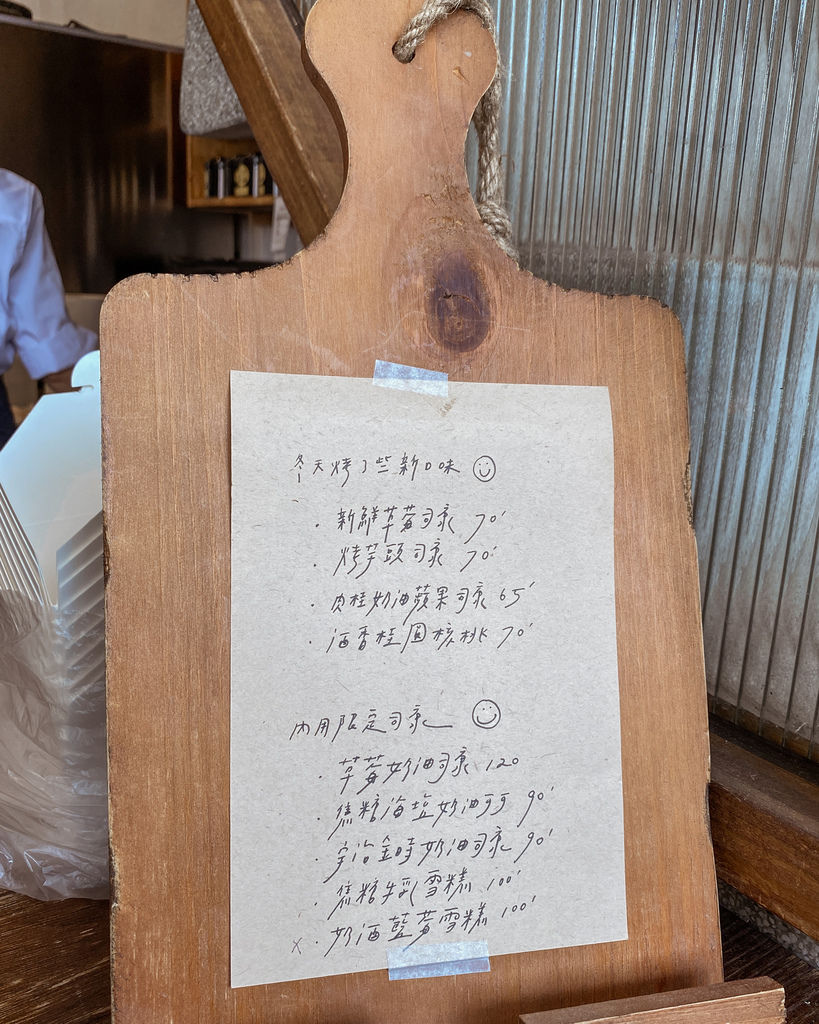 冬天烤了些新口味
· 新鮮草莓司康 70'
· 烤芋頭司康 70'
· 肉桂奶油蘋果司康 65'
· 酒香桂圓核桃 70'
內用限定司康
· 草莓奶油司康 120
· 焦糖海塩奶油可可 90'
· 宇治金時奶油司康 90'
· 焦糖牛乳雪糕 100'
x · 奶酒藍莓雪糕 100'